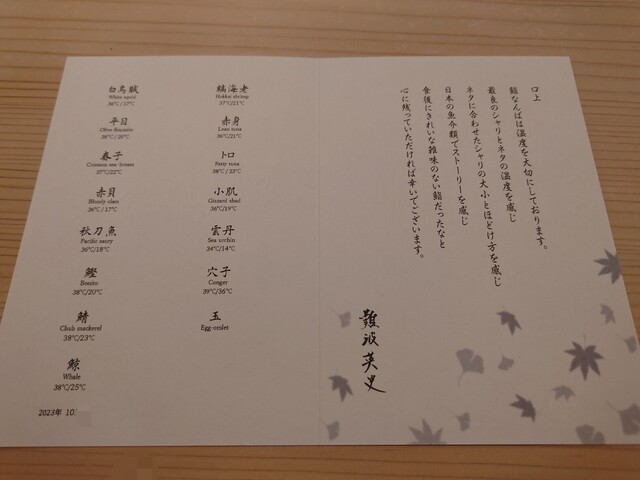 白烏賊
White squid
36℃/17℃
平目
Olive flounder
38℃/20℃
春子
Crimson sea-bream
37℃/22℃
赤貝
Bloody clam
36℃/17℃
秋刀魚
Pacific saury
36℃/18℃
鰹
Bonito
38℃/20℃
鯖
Chub mackerel
38℃/23℃
鯨
Whale
38℃/25℃
2023年 10.
縞海老
Hokkai shrimp
37℃/21℃
赤身
Lean tuna
36℃/21℃
トロ
Fatty tuna
38℃/23℃
小肌
Gizzard shad
36℃/19℃
雲丹
Sea urchin
34℃/14℃
穴子
Conger
39℃/36℃
玉
Egg-omlet
口上
鮨なんばは温度を大切にしております。
最良のシャリとネタの温度を感じ
ネタに合わせたシャリの大小とほどけ方を感じ
日本の魚介類でストーリーを感じ
食後にきれいな雑味のない鮨だったなと
心に残っていただければ幸いでございます。
難波英史